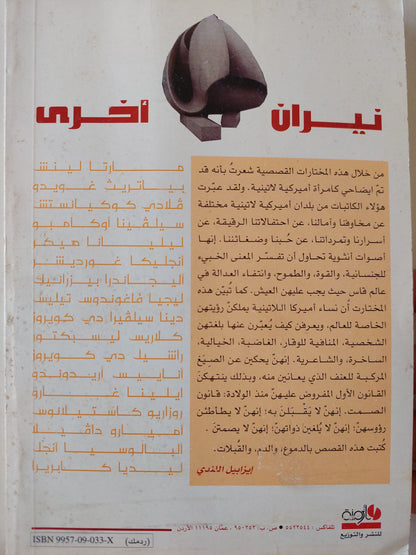 نيران أخرى
من خلال هذه المختارات القصصية شعرتُ بأنه قد
تمّ إيضاحي كامرأة أميركية لاتينية. ولقد عبّرت
هؤلاء الكاتبات من بلدان أميركية لاتينية مختلفة
عن مخاوفنا وآمالنا، عن احتفالاتنا الرقيقة، عن
أسرارنا وتمرداتنا، عن حُبنا وضغائننا. إنها
أصوات أنثوية تحاول أن تفسّر المعنى الخبيء
للجنسانية، والقوة، والطموح، وانتفاء العدالة في
عالم قاسٍ حيث يجب عليهن العيش. كما تبيّن هذه
المختارت أن نساء أميركا اللاتينية يملكنَ رؤيتهن
الخاصة للعالم، ويعرفن كيف يُعبّرن عنها بلغتهن
الشخصية، المنافية للوقار، الغاضبة، الخيالية،
الساخرة، والشاعرية. إنهنّ يحكين عن الصيغ
المركبة للعنف الذي يعانين منه، وبذلك ينتهكنَ
القانون الأول المفروض عليهنّ منذ الولادة: قانون
الصمت. إنهنّ لا يَقْبَلنَ به؛ إنهنّ لا يطأطئن
رؤوسهنّ؛ إنهنّ لا يُلغين ذواتهنّ؛ إنهنّ لا يصمتنَ.
كُتبت هذه القصص بالدموع، والدم، والقُبلات.
إيزابيل اللندي
مارتا لينتش
بياتريث غويدو
ڤلادي كوكيانستش
سيلڤينا أوكامبو
ليليانا هيكر
أنجليكا غورديتشر
أليجاندرا بيزارنيك
ليجيا فاغوندوس تيليس
دينا سيلڤيرا دي كويروز
كلاريس ليسبكتور
راشيل دي كويروز
أناييس أريدوندو
إيلينا غارو
روزاريو كاستيلانوس
أمبارو داڤيلا
ألبالوسيا أنجل
ليديا كابريرا
ISBN 9957-09-033-X (ردمك)
تلفاكس: ٥٥٢٢٥٤٤ • ص.ب: ٩٥٠٢٥٢، عمّان ١١١٩٥ الأردن
أزمنة
للنشر والتوزيع